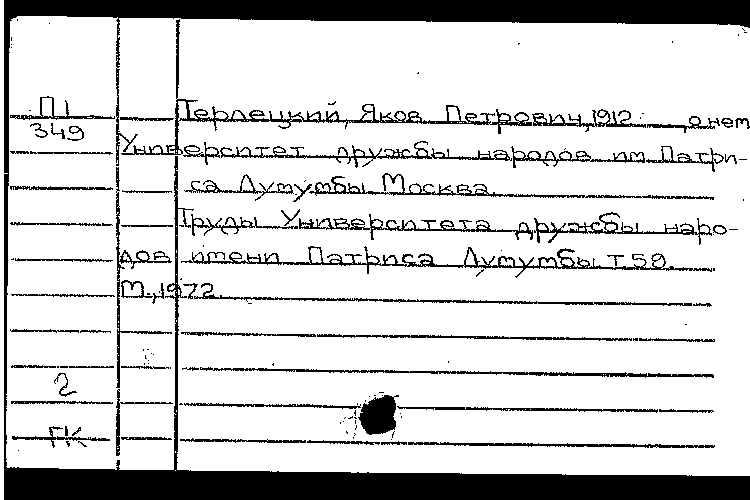 П1
349
Терлецкий, Яков Петрович, 1912. , о нем
Университет дружбы народов им. Патри-
са Лумумбы Москва.
Труды Университета дружбы наро-
дов имени Патриса Лумумбы. Т.59.
М., 1972.
2
ГК